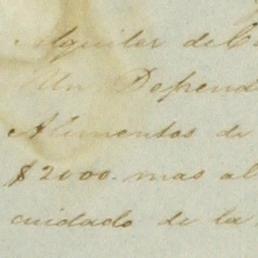 Alquiler de C
Un Depend
Alimentos de
$2000. mas al
cuidado de la